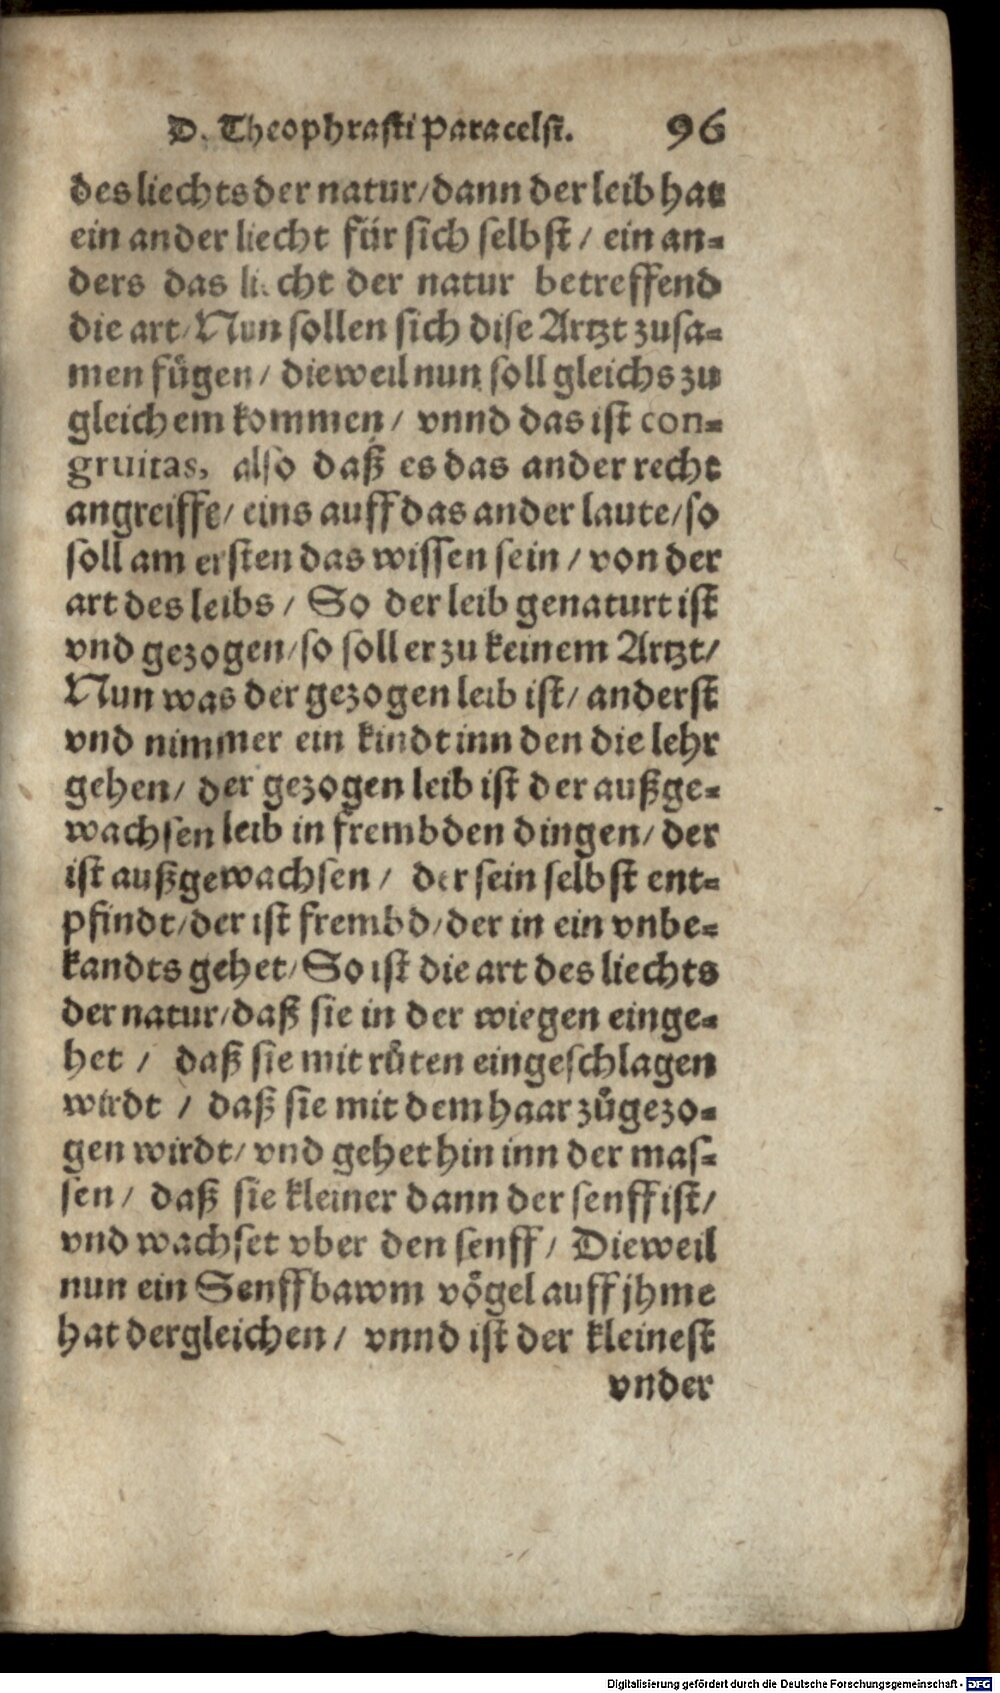 D. Theophrasti Paracelsi. 96
des liechts der natur/dann der leib hat
ein ander liecht für sich selbst / ein an-
ders das liecht der natur betreffend
die art/Nun sollen sich dise Artzt zusa-
men fügen / dieweil nun soll gleichs zu
gleichem kommen / vnnd das ist con-
gruitas, also daß es das ander recht
angreiffe/ eins auff das ander laute/so
soll am ersten das wissen sein / von der
art des leibs / So der leib genaturt ist
vnd gezogen/so soll er zu keinem Artzt/
Nun was der gezogen leib ist/ anderst
vnd nimmer ein kindt inn den die lehr
gehen/ der gezogen leib ist der außge-
wachsen leib in frembden dingen/ der
ist außgewachsen / der sein selbst ent-
pfindt/der ist frembd/der in ein vnbe-
kandts gehet/So ist die art des liechts
der natur/daß sie in der wiegen einge-
het / daß sie mit růten eingeschlagen
wirdt / daß sie mit dem haar zůgezo-
gen wirdt/ vnd gehet hin inn der mas-
sen / daß sie kleiner dann der senff ist/
vnd wachset vber den senff / Dieweil
nun ein Senffbawm vögel auff jhme
hat dergleichen / vnnd ist der kleinest
vnder
Digitalisierung gefördert durch die Deutsche Forschungsgemeinschaft - DFG